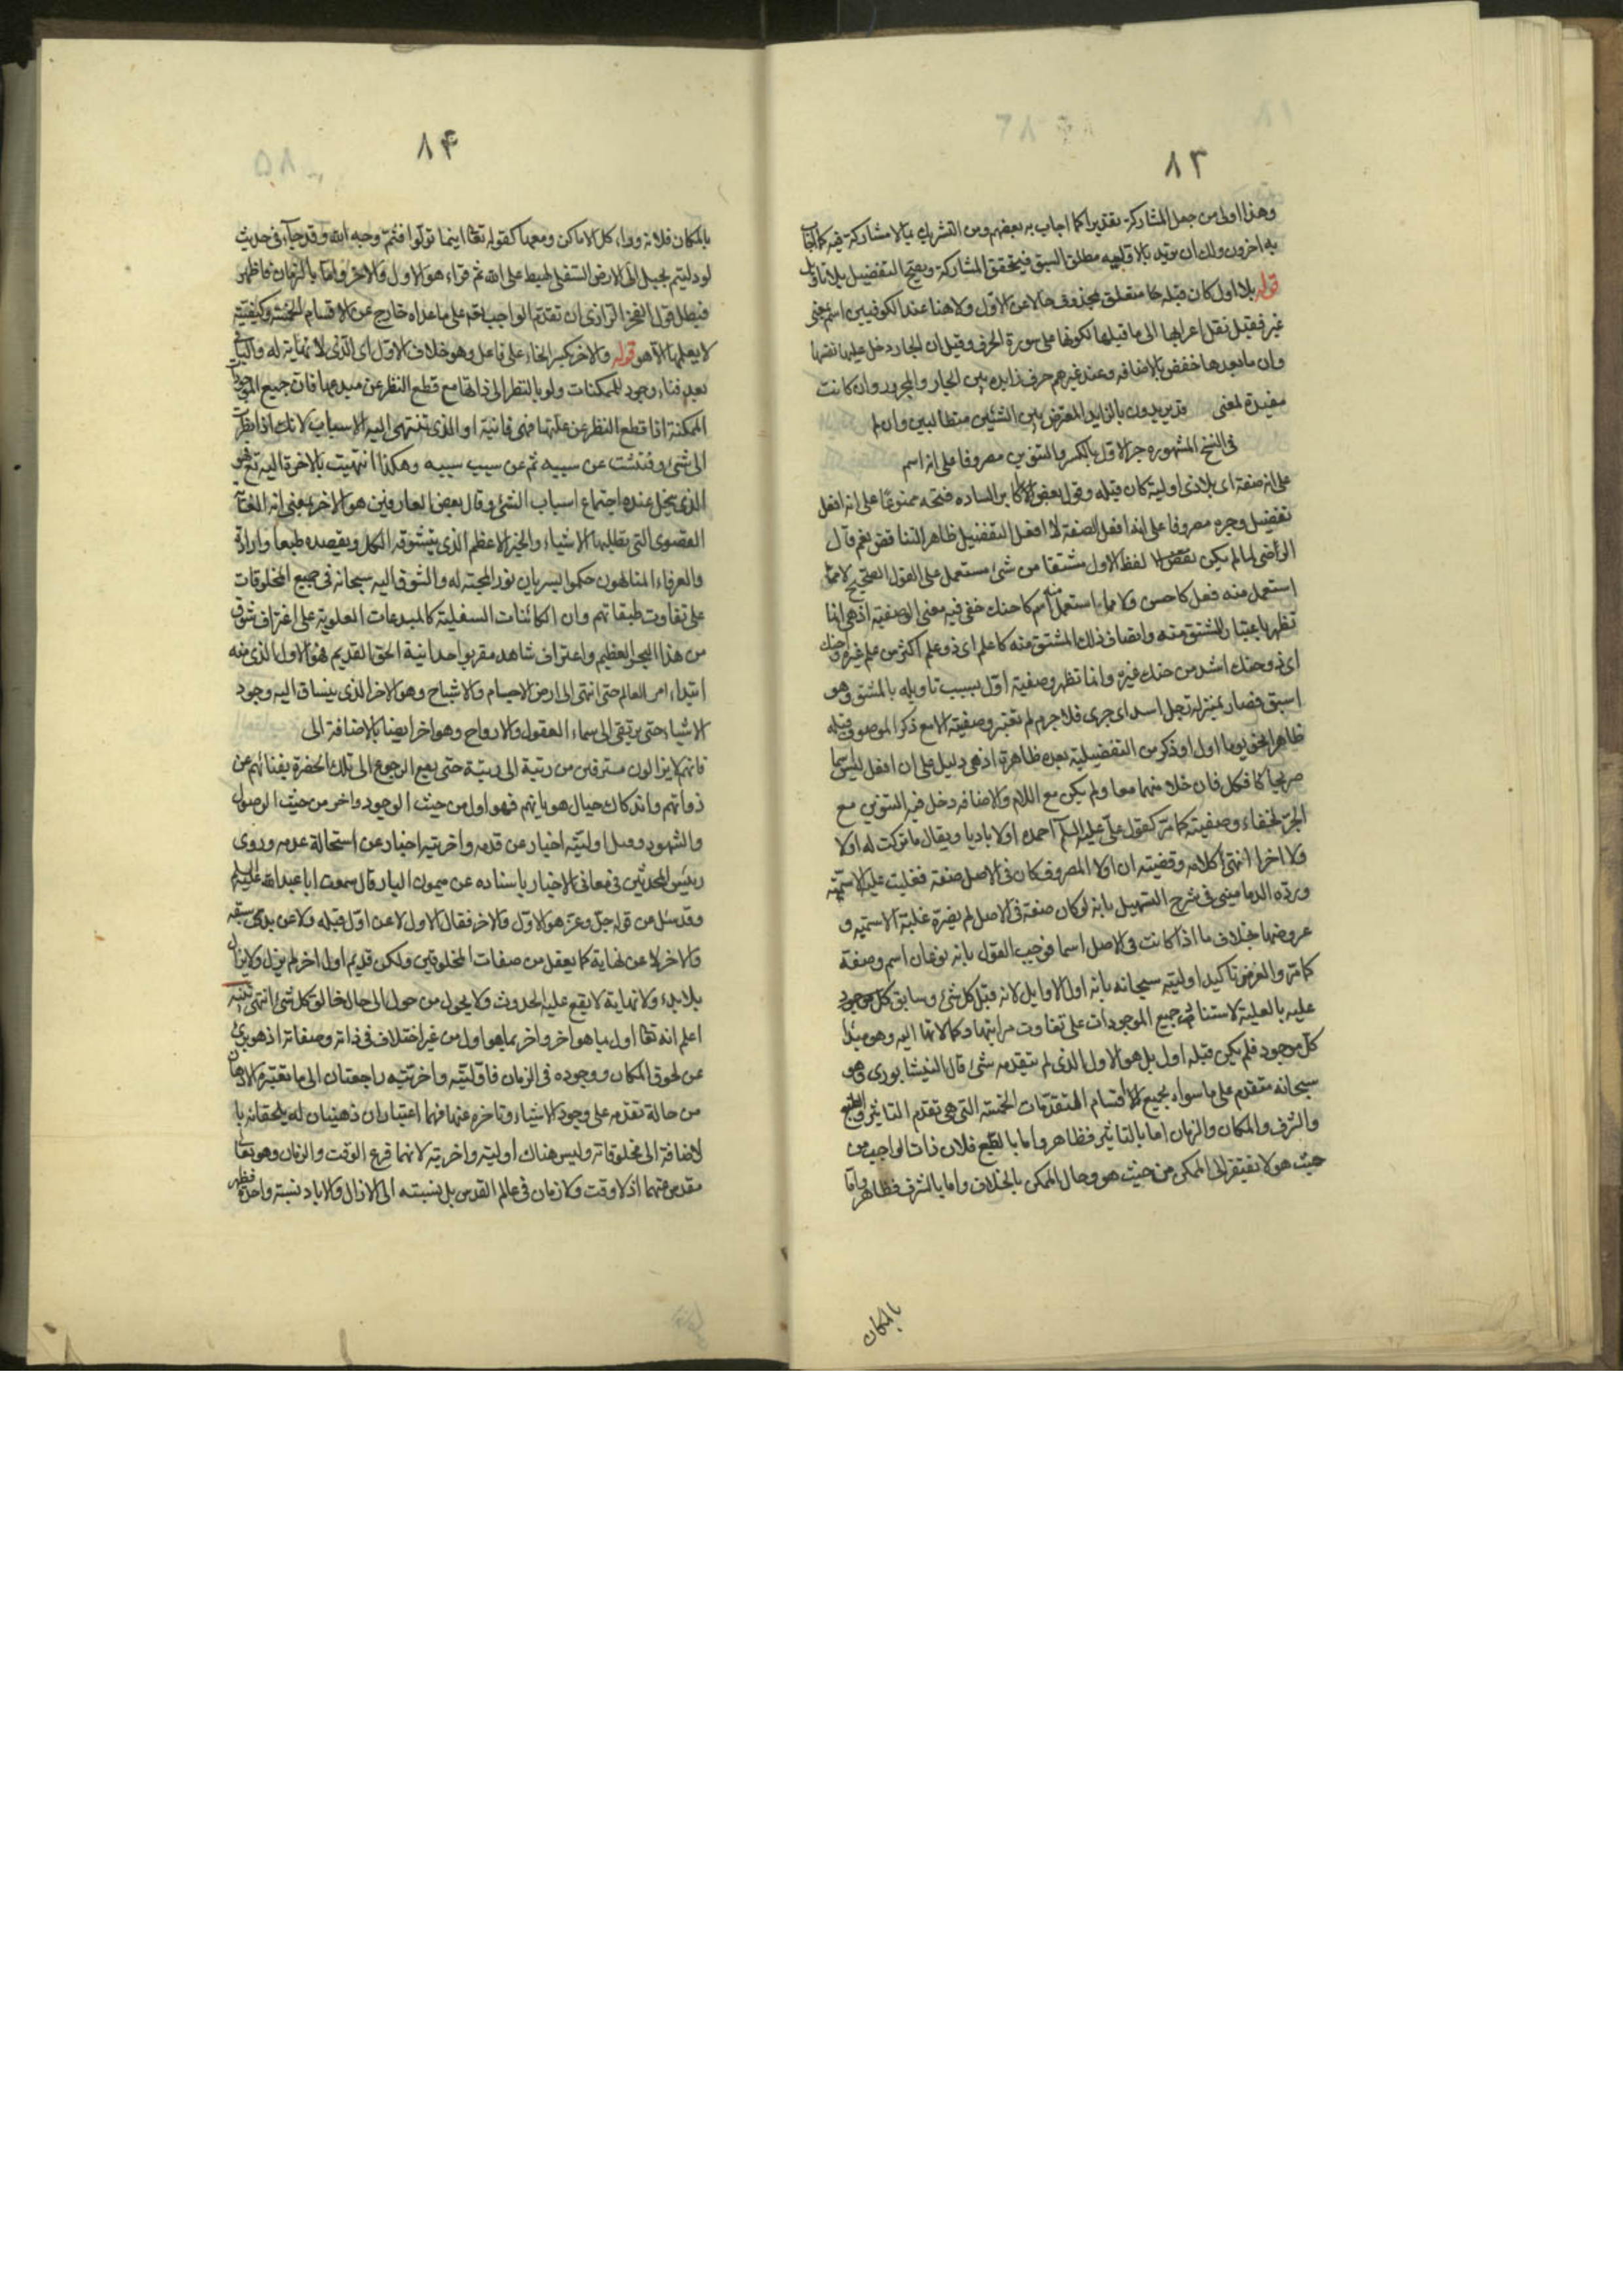 ٨٣
وهذا اولى من جعل المشاركة تقديرا كما اجاب به بعضهم ومن التشريك بما لا مشاركة فيه كما اجاب
به اخرون ولك ان تريد بالاولية مطلق السبق فيتحقق المشاركة ويصح التفضيل بلا تاويل
قوله بلا اول كان قبله متعلق بمحذوف حالا عن الاول ولا هنا عند الكوفيين اسم بمعنى
غير فقيل نقل اعرابها الى ما قبلها لكونها على صورة الحرف وقيل ان الجار دخل عليها نفسها
وان ما بعدها خفض بالاضافه وعند غيرهم حرف زايده بين الجار والمجرور وان كانت
مفيدة لمعنى قد يريدون بالزايد المعترض بين الشيئين متطالبين وان لم
فى النسخ المشهوره جر الاول بالكسر والتنوين مصروفا على انه اسم
على انه صفة اى بلا ذى اولية كان قبله وقول بعض الاكابر الساده فتحه ممنوعا على انه افعل
تفضيل وجره مصروفا على انه افعل الصفة لا افعل التفضيل ظاهر التناقض نعم قال
الرضى لما لم يكن لفظ الاول مشتقا من شئ مستعمل على القول الصحيح لا مما
استعمل منه فعل كاحسن ولا مما استعمل منه اسم كاحنك خفى فيه معنى الوصفية اذ هى انما
تظهر باعتبار المشتق منه واتصاف ذلك المشتق منه كاعلم اى ذو علم اكثر من علم غيره واحنك
اى ذو حنك اشد من حنك غيره وانما تظهر وصفية اول بسبب تاويله بالمشتق وهو
اسبق فصار بمنزله رجل اسد اى جرى فلا جرم لم تعتبر وصفيته الا مع ذكر الموصوف قبله
ظاهرا نحو يوما اول او ذكر من التفضيلية بعده ظاهرة اذ هى دليل على ان افعل ليس اسما
صريحا كافكل فان خلا منهما معا ولم يكن مع اللام والاضافه دخل فيه التنوين مع
الجر لخفاء وصفيته كما مر كقول على عليه السلم احمده اولا باديا ويقال ما تركت له اولا
ولا اخرا انتهى كلامه وقضيته ان اولا المصروف كان فى الاصل صفة فغلبت عليه الاسمية
ورده الدمامينى فى شرح التسهيل بانه لو كان صفة فى الاصل لم يضره غلبة الاسميه و
عروضها بخلاف ما اذا كانت فى الاصل اسما فوجب القول بانه نوعان اسم وصفة
كما مر والغرض تاكيد اوليته سبحانه بانه اول الاوايل لانه قبل كل شئ وسابق كل موجود
عليه بالعلية لاستناد جميع الموجودات على تفاوت مراتبها وكمالاتها اليه وهو مبدا
كل موجود فلم يكن قبله اول بل هو الاول الذى لم يتقدمه شئ قال النيشابورى وهو
سبحانه متقدم على ما سواه بجميع الاقسام المتقدمات الخمسة التى هى تقدم التاثير والطبع
والشرف والمكان والزمان اما بالتاثير فظاهر واما بالطبع فلان ذات الواجب من
حيث هو لا يفتقر الى الممكن من حيث هو وحال الممكن بالخلاف واما بالشرف فظاهر واما
بالمكان
٨۴
بالمكان فلانه وراء كل الاماكن ومعها كقوله تعا اينما تولوا فثم وجه الله وقد جاء فى حديث
لو دليتم بحبل الى الارض السفلى لهبط على الله ثم قراء هو الاول والاخر واما بالزمان فاظهر
فبطل قول الفخر الرازى ان تقدم الواجب تعا على ما عداه خارج عن الاقسام الخمسة وكيفيته
لا يعلمها الا هو قوله والاخر بكسر الخاء على فاعل وهو خلاف الاول اى الذى لا نهاية له والباقى
بعد فناء وجود الممكنات ولو بالنظر الى ذاتها مع قطع النظر عن مبدعها فان جميع الموجودات
الممكنة اذا قطع النظر عن علتها فهى فانية او الذى تنتهى اليه الاسباب لانك اذا نظرت
الى شئ وفتشت عن سببه ثم عن سبب سببه وهكذا انتهيت بالاخرة اليه تع فهو
الذى ينحل عنده اجتماع اسباب الشئ وقال بعض العارفين هو الاخر بمعنى انه الغاية
القصوى التى تطلبها الاشياء والخير الاعظم الذى يتشوقه الكل ويقصده طبعا وارادة
والعرفاء المتالهون حكموا بسريان نور المحبة له والشوق اليه سبحانه فى جميع المخلوقات
على تفاوت طبقاتهم وان الكائنات السفلية كالمبدعات العلوية على اغتراف شوق
من هذا البحر العظيم واعتراف شاهد مقر بوحدانية الحق القديم فهو الاول الذى منه
ابتداء امر العالم حتى انتهى الى ارض الاجسام والاشباح وهو الاخر الذى ينساق اليه وجود
الاشياء حتى يرتقى الى سماء العقول والارواح وهو اخر ايضا بالاضافة الى
فانهم لا يزالون مترقين من رتبة الى رتبة حتى يقع الرجوع الى تلك الحضرة بفنائهم عن
ذواتهم واندكاك جبال هوياتهم فهو اول من حيث الوجود واخر من حيث الوصول
والشهود وقيل اوليته اخبار عن قدمه واخريته اخبار عن استحالة عدمه وروى
رئيس المحدثين فى معانى الاخبار باسناده عن ميمون البان قال سمعت ابا عبد الله عليه السلم
وقد سئل من قوله جل وعز هو الاول والاخر فقال الاول لا عن اول قبله ولا عن بدئ سبقه
والاخر لا عن نهاية كما يعقل من صفات المخلوقين ولكن قديم اول اخر لم يزل ولا يزال
بلا بدء ولا نهاية لا يقع عليه الحدوث ولا يحول من حال الى حال خالق كل شئ انتهى تنبيه
اعلم انه تعا اول بما هو اخر واخر بما هو اول من غير اختلاف فى ذاته وصفاته اذ هو برئ
عن لحوق المكان ووجوده فى الزمان فاوليته واخريته راجعتان الى ما تعتبره الاذهان
من حالة تقدمه على وجود الاشياء وتاخره عنها فهما اعتباران ذهنيان له يلحقانه با
لاضافة الى مخلوقاته وليس هناك اولية واخرية لانهما فرع الوقت والزمان وهو تعا
مقدس عنهما اذ لا وقت ولا زمان فى عالم القدس بل نسبته الى الازال والاباد نسبة واحدة فظهر